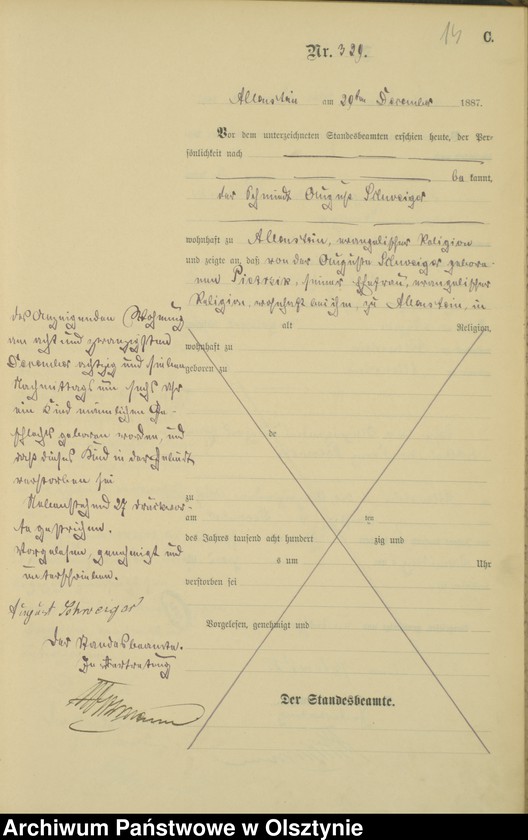 14 C.
Nr. 329.
Allenstein am 29ten December 1887.
Vor dem unterzeichneten Standesbeamten erschien heute, der Per=
sönlichkeit nach
be kannt,
der Schmiedt August Schweiger
wohnhaft zu Allenstein, evangelischer Religion
und zeigte an, daß von der Auguste Schweiger gebore-
nen Pietrzik, seiner Ehefrau, evangelischer
Religion, wohnhaft bei ihm, zu Allenstein, in
alt Religion,
wohnhaft zu
geboren zu
de
zu
am ten
des Jahres tausend acht hundert zig und
s um Uhr
verstorben sei
Vorgelesen, genehmigt und
Der Standesbeamte.
des Anzeigenden Wohnung
am acht und zwanzigsten
December achtzig und sieben
Nachmittags um sechs Uhr
ein Kind männlichen Ge-
schlechts geboren worden, und
daß dieses Kind in der Geburt
verstorben sei
Nebenstehend 27 Druckwor-
te gestrichen.
Vorgelesen, genehmigt und
unterschrieben.
August Schweiger
Der Standesbeamte.
In Vertretung
Archiwum Państwowe w Olsztynie